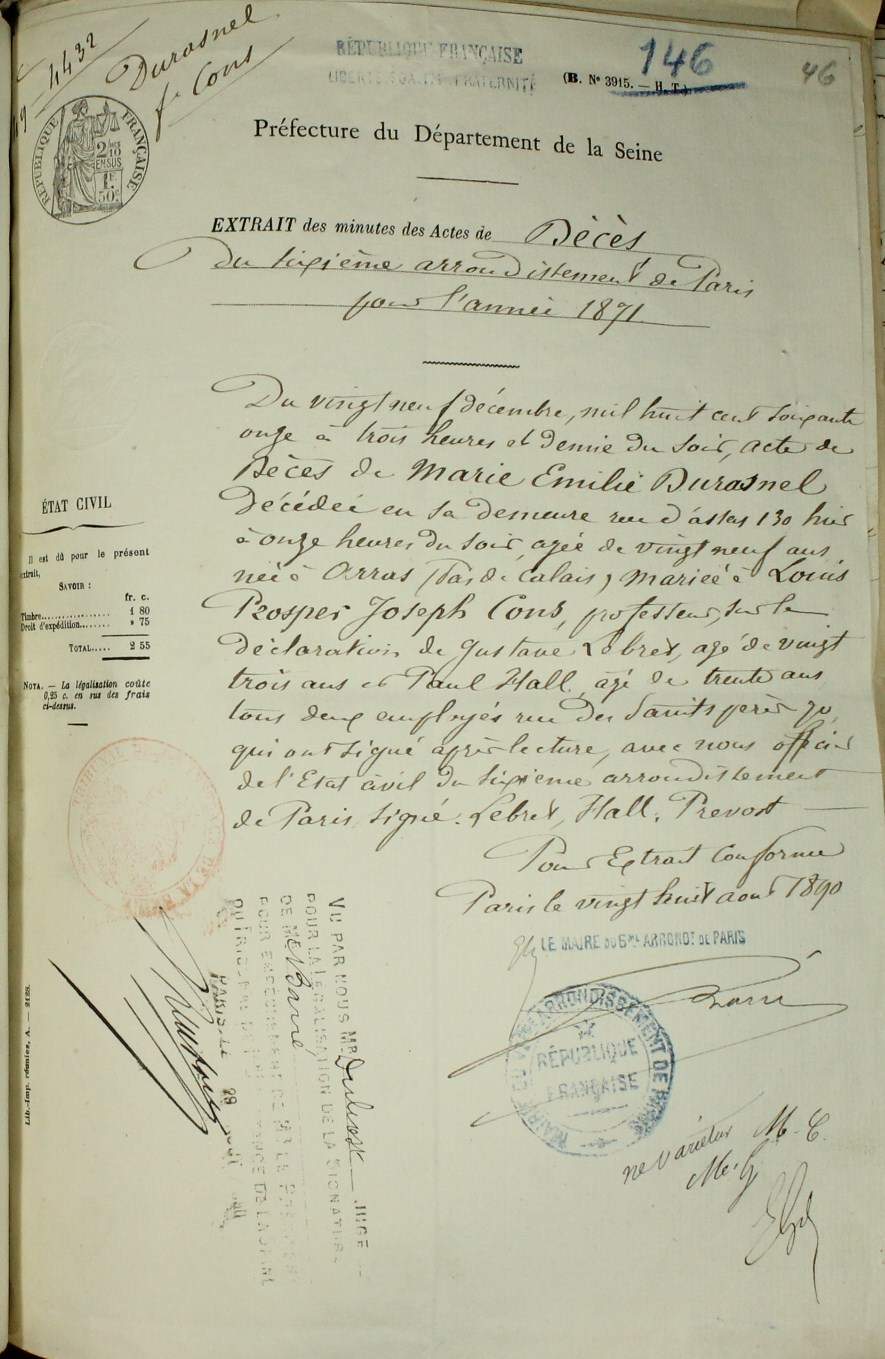 4432
Durasnel
f. Cons
RÉPUBLIQUE FRANÇAISE
LIBERTÉ ÉGALITÉ FRATERNITÉ
(B. Nº 3915. — H. T.)
146
46
RÉPUBLIQUE FRANÇAISE
2/10
EN SUS
1F
50c
Préfecture du Département de la Seine
EXTRAIT des minutes des Actes de Décès
Du sixième arrondissement de Paris
pour l'année 1871
Du vingt neuf décembre, mil huit cent soixante
onze à trois heures et demie du soir, acte de
Décès de Marie Emilie Durasnel
Décédée en sa demeure rue d'assas 130 hier
à onze heures du soir, agée de vingt neuf ans
née à Arras (Pas de Calais) mariée à Louis
Prosper Joseph Cons, professeur, sur la
déclaration de Gustave Lebret, agé de vingt
trois ans et Paul Hall, agé de trente ans
tous deux employés rue des Saints pères 70,
qui ont signé après lecture, avec nous officier
de l'Etat civil du sixième arrondissement
de Paris, signé: Lebret, Hall, Prevost —
Pour Extrait Conforme
Paris le vingt huit aout 1890
LE MAIRE DU 6ME ARRONDT DE PARIS
MAIRIE DU VIE ARRONDISSEMENT DE PARIS
RÉPUBLIQUE
FRANÇAISE
ne varietur M. C.
M. G
ÉTAT CIVIL
Il est dû pour le présent
extrait,
SAVOIR :
fr. c.
Timbre................ 1 80
Droit d'expédition........ » 75
TOTAL..... 2 55
NOTA. — La légalisation coûte
0,25 c. en sus des frais
ci-dessus.
VU PAR NOUS MR JUGE
POUR LA LÉGALISATION DE LA SIGNATURE
DE MR
POUR EMPÊCHEMENT DE MR LE PRÉSIDENT
DU TRIBUNAL DE 1ÈRE INSTANCE DE LA SEINE
PARIS, LE 29
Lib.-Imp. réunies, A. — 2125.